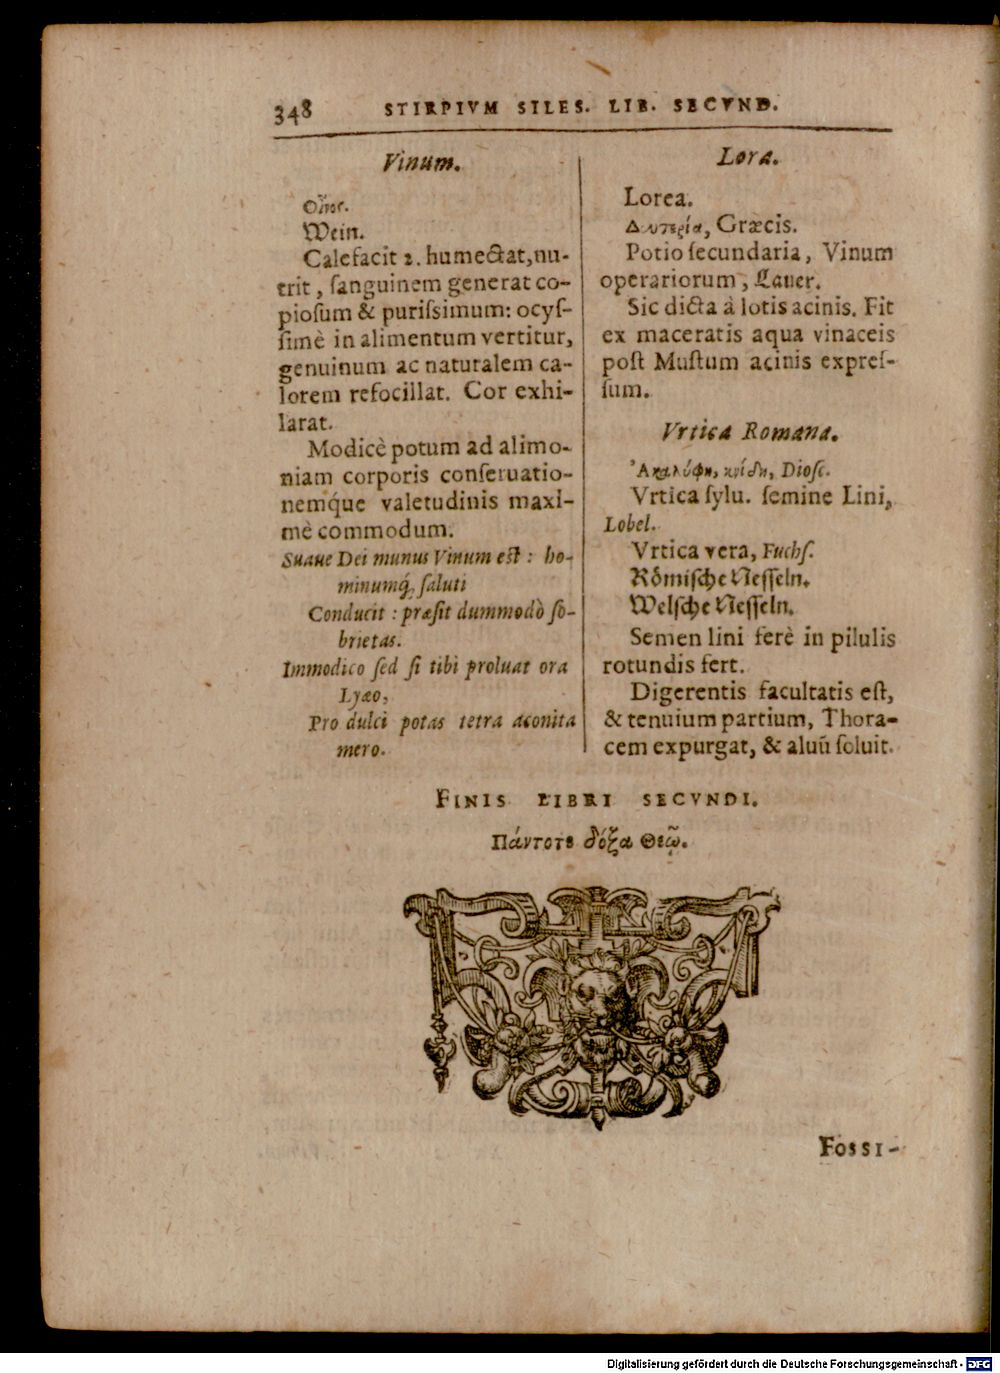 348 STIRPIVM SILES. LIB. SECVND.
Vinum.
Οἶνος.
Wein.
Calefacit 2. humectat, nu-
trit, ſanguinem generat co-
pioſum & puriſsimum: ocyſ-
ſimè in alimentum vertitur,
genuinum ac naturalem ca-
lorem refocillat. Cor exhi-
larat.
Modicè potum ad alimo-
niam corporis conſeruatio-
nemq́ue valetudinis maxi-
mè commodum.
Suaue Dei munus Vinum eſt : ho-
minumq́; ſaluti
Conducit : præſit dummodò ſo-
brietas.
Immodico ſed ſi tibi proluat ora
Lyæo,
Pro dulci potas tetra aconita
mero.
Lora.
Lorea.
Δευτερία, Græcis.
Potio ſecundaria, Vinum
operariorum, Lauer.
Sic dicta à lotis acinis. Fit
ex maceratis aqua vinaceis
poſt Muſtum acinis expreſ-
ſum.
Vrtica Romana.
Ἀκαλύφη, κνίδη, Dioſc.
Vrtica ſylu. ſemine Lini,
Lobel.
Vrtica vera, Fuchſ.
Römiſche Neſſeln.
Welſche Neſſeln.
Semen lini ferè in pilulis
rotundis fert.
Digerentis facultatis eſt,
& tenuium partium, Thora-
cem expurgat, & aluũ ſoluit.
FINIS LIBRI SECVNDI.
Πάντοτε δόξα Θεῷ.
FOSSI-
Digitalisierung gefördert durch die Deutsche Forschungsgemeinschaft - DFG